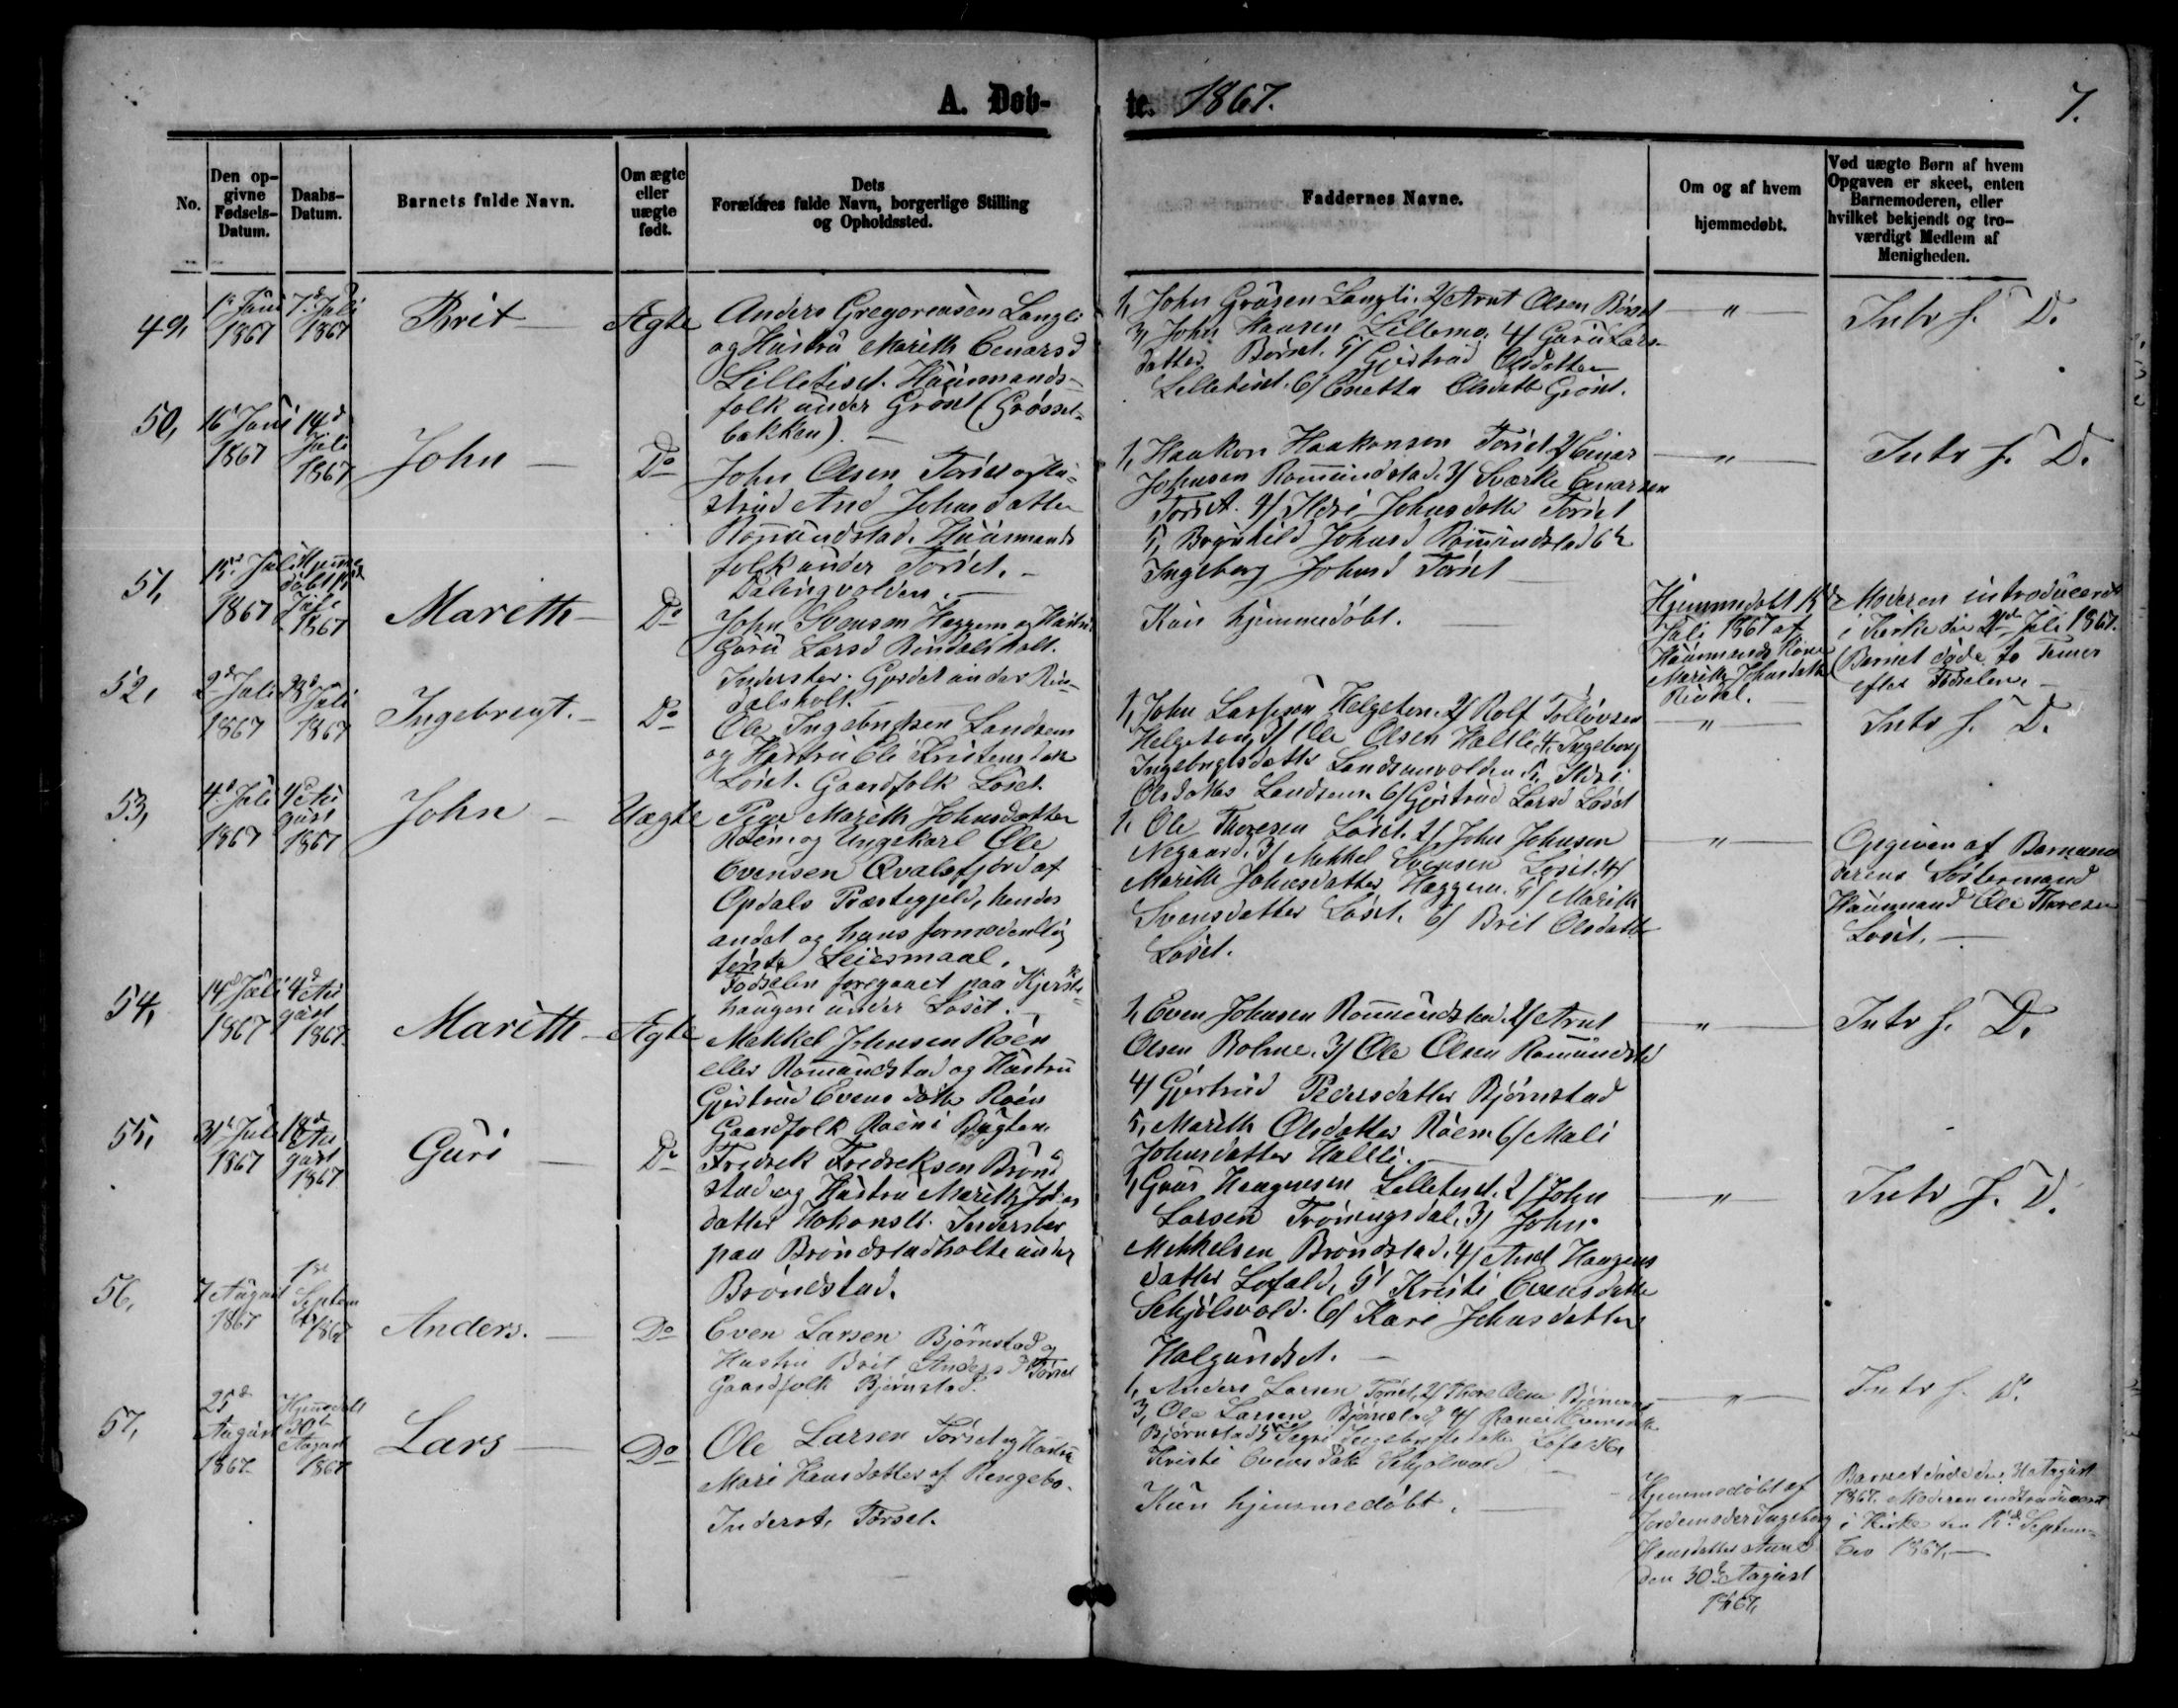 A. Døb-
te. 1867.
7.
No.
Den op-
givne
Fødsels-
Datum.
Daabs-
Datum.
Barnets fulde Navn.
Om ægte
eller
uægte
født.
Dets
Forældres fulde Navn, borgerlige Stilling
og Opholdssted.
Faddernes Navne.
Om og af hvem
hjemmedøbt.
Ved uægte Børn af hvem
Opgaven er skeet, enten
Barnemoderen, eller
hvilket bekjendt og tro-
værdigt Medlem af
Menigheden.
49,
1867
7d Juli
1867
Brit
Ægte
Anders Gregoriusen Langli
og Hustru Marith Einarsd
Lilletiset. Huusmands-
folk under Grøset (Grøsset-
bakken).
1, John Langli. 2/ Arnt Olsen Børset
3, John Hansen Lillemo. 4/ Guru Lars-
datter Børset. 5/ Gjertrud Olsdatter
Lilletiset. 6/ Olsdatter Grøset.
"
Intr f. D.
50,
16 Juni
1867
14d
Juli
1867
John
Do
John Olsen Torset og Hu-
strue And Johnsdatter
Romundstad. Huusmands
folk under Torset.
Dalingvolden.
1, Haakon Haakonsen Torset 2/ Einar
Johnsen Romundstad. 3/ Sværke Einarsen
Torset. 4/ Ildri Johnsdatter Torset
5, Johnsd Romundstad 6,
Ingeborg Johnsd Torset
"
Intr f. D.
51,
15d Juli
1867
Hjemme
døbt 15d
Juli
1867
Marith
Do
John Svensen Heggem og Hustru
Guru Larsd Rindalsholt.
Inderster. Gjordet under Rin-
dalsholt.
Kun hjemmedøbt.
Hjemmedøbt 15d
Juli 1867 af
Huusmands Kone
Marith Johnsdatter
Rindal.
Moderen introduceredt
i Kirke den 21de Juli 1867.
Barnet døde to Timer
efter Fødselen.
52,
2d Juli
1867
Juli
1867
Ingebregt.
Do
Ole Ingebrigtsen Landsem
og Hustru Eli Kristensdatr
Løset. Gaardfolk Løset.
1, John Larssen Helgeton. 2/ Rolf Tolløvsen
Helgeton, 3/ Ole Olsen Haltli 4, Ingeborg
Ingebrigtsdatter Landsemvolden 5, Ildri
Olsdatter Landsem. 6/ Gjertrud Larsd Løset
"
Intr f. D.
53,
4d Juli
1867
4d Au
gust
1867
John
Uægte
Pige Marith Johnsdatter
Roen og Ungekarl Ole
Evensen Qvalsfjord af
Opdals Præstegjeld, hendes
andet og hans formodentlig
første Leiermaal.
Fødselen foregaaet paa Kjerste-
haugen under Løset.
1, Ole Thoresen Løset. 2/ John Johnsen
Negaard. 3/ Mekkel Svensen Løset. 4/
Marith Johnsdatter Heggem. 5/ Marith
Svensdatter Løset. 6/ Brit Olsdatter
Løset.
"
Opgiven af Barnemo
derens Søstermand
Huusmand Ole Thoresen
Løset.
54,
14d Juli
1867
4d Au
gust
1867
Marith
Ægte
Mekkel Johnsen Roen
eller Romundstad og Hustru
Gjertrud Evensdatter Roen
Gaardfolk Roen i Bygten.
1, Even Johnsen Romundstad. 2/ Arnt
Olsen Bolme. 3/ Ole Olsen Romundstd
4/ Gjertrud Pedersdatter Bjørnstad
5, Marith Olsdatter Roen. 6/ Mali
Johnsdatter Haltli.
"
Intr f. D.
55,
31te Juli
1867
18d
Au
gust
1867
Guri
Do
Fredrek Fredreksen Brønd
stad og Hustru Marith Johns
datter Hokonsli. Inderster
paa Brøndstadholte under
Brøndstad.
1, Lilletiset. 2/ John
Larsen Trønengsdal. 3/ John
Mekkelsen Brøndstad. 4/ And Haagens
datter Lofald, 5/ Kristi Evensdatter
Skjølsvold. 6/ Kari Johnsdatter
Halgundset.
"
Intr f. D.
56,
7 August
1867
1ste
Septem
ber
1867
Anders.
Do
Even Larsen Bjørnstad og
Hustru Brit Andersd Torset
Gaardfolk Bjørnstad.
1, Anders Larsen Torset, 2/ Thore Olsen
3, Ole Larsen Bjørnstad 4/ Evensdatter
Bjørnstad 5, Ingebrigtsdatter Lofald 6,
Kristi Evensdatr Skjølsvold
"
Intr f. D.
57,
25d
August
1867
Hjemmedøbt
30te
August
1867
Lars
Do
Ole Larsen Torset og Hustru
Mari Hansdatter af Rengebo.
Inderst. Torset.
Kun hjemmedøbt.
Hjemmedøbt af
Jordemoder Ingeborg
Hansdatter Aune
den 30te August
1867.
Barnet døde den August
1867. Moderen introduceret
i Kirke den 15d Septem-
ber 1867.